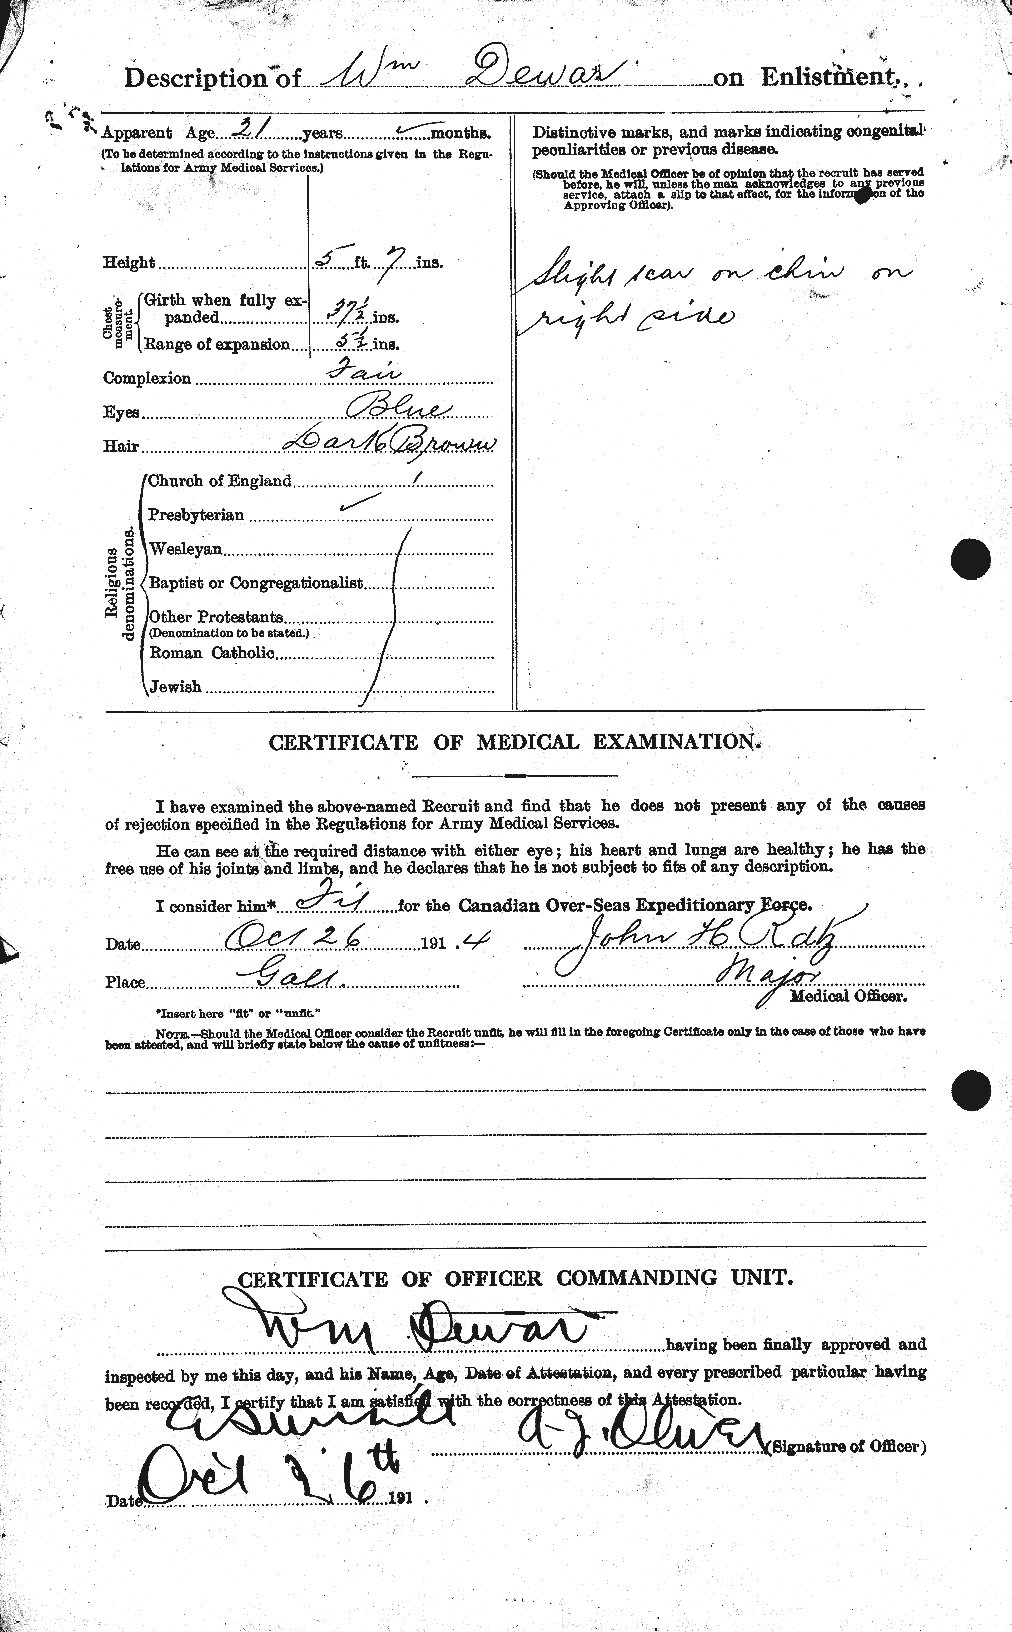 Description of Wm Dewar on Enlistment.
Apparent Age 21 years ✓ months.
(To be determined according to the instructions given in the Regu-
lations for Army Medical Services.)
Height 5 ft. 7 ins.
Chest measure-ment.
Girth when fully ex-
panded 37½ ins.
Range of expansion 5½ ins.
Complexion Fair
Eyes Blue
Hair Dark Brown
Religious denominations.
Church of England
Presbyterian ✓
Wesleyan
Baptist or Congregationalist
Other Protestants
(Denomination to be stated.)
Roman Catholic
Jewish
Distinctive marks, and marks indicating congenital
peculiarities or previous disease.
(Should the Medical Officer be of opinion that the recruit has served
before, he will, unless the man acknowledges to any previous
service, attach a slip to that effect, for the information of the
Approving Officer).
Slight scar on chin on
right side
CERTIFICATE OF MEDICAL EXAMINATION.
I have examined the above-named Recruit and find that he does not present any of the causes
of rejection specified in the Regulations for Army Medical Services.
He can see at the required distance with either eye; his heart and lungs are healthy; he has the
free use of his joints and limbs, and he declares that he is not subject to fits of any description.
I consider him* Fit for the Canadian Over-Seas Expeditionary Force.
Date Oct 26 1914 John H Ratz
Place Galt. Major
Medical Officer.
*Insert here "fit" or "unfit."
NOTE.—Should the Medical Officer consider the Recruit unfit, he will fill in the foregoing Certificate only in the case of those who have
been attested, and will briefly state below the cause of unfitness:—
CERTIFICATE OF OFFICER COMMANDING UNIT.
Wm Dewar having been finally approved and
inspected by me this day, and his Name, Age, Date of Attestation, and every prescribed particular having
been recorded, I certify that I am satisfied with the correctness of this Attestation.
A. J. Oliver (Signature of Officer)
Date Oct 26th 191 .